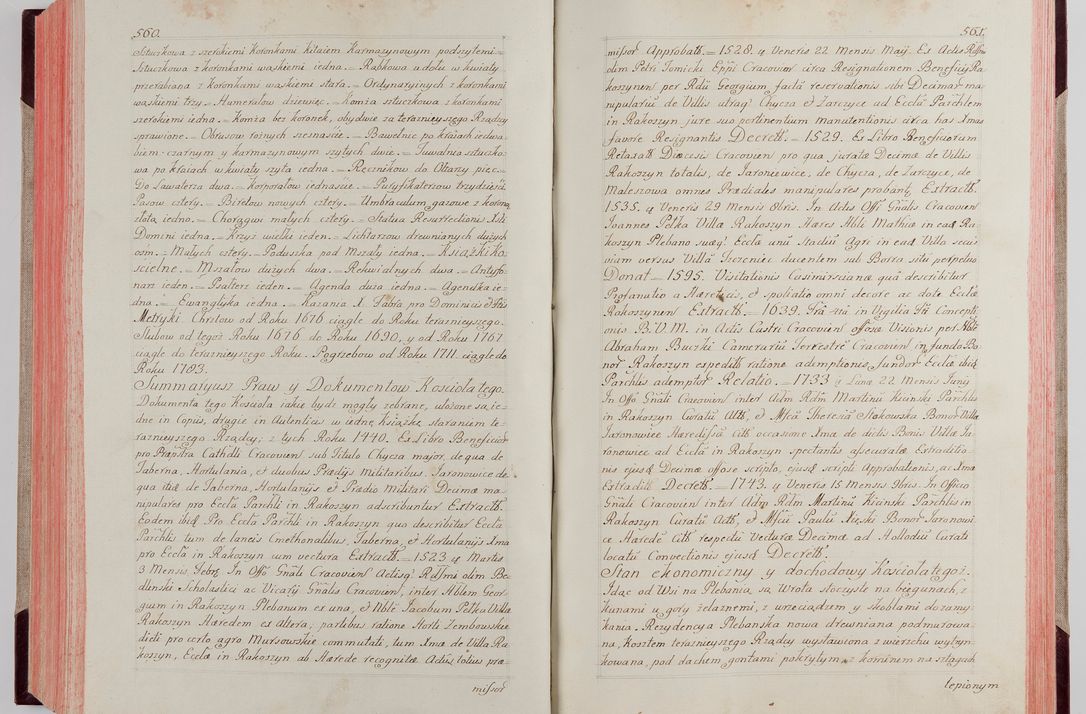 560.
Sztuczkowa z szerokiemi koronkami kitaiem karmazynowym podszytemi =
Sztuczkowa z koronkami wąskiemi iedna. = Rąbkowa u dołu w kwiaty
przerabiana z koronkami wąskiemi stara. = Ordynaryinych z koronkami
wąskiemi trzy. = Humerałow dziewięć. = Komża sztuczkowa z koronkami
szerokiemi iedna. = Komża bez koronek, obydwie za teraznieyszego Rządcy
sprawione. = Obrusow roznych szesnaście. = Bawełnic po kraiach iedwa-
biem czarnym y karmazynowym szytych dwie. = Tuwalnia sztuczko-
wa po kraiach w kwiaty szyta iedna. = Ręcznikow do Ołtarzy pięc. =
Do Lawaterza dwa. = Korporałow iednaście. = Puryfikaterzow trzydzieści.
Pasow cztery. = Biretow nowych cztery. = Umbraculum gazowe z koroną
złotą iedno. = Chorągwi małych cztery. = Statua Resurrectionis Xti
Domini iedna. = Krzyż wielki ieden. = Lichtarzow drewnianych dużych
ośm. = Małych cztery. = Poduszka pod Mszały iedna. = Książki Ko-
ścielne. = Mszałow dużych dwa. = Rekwialnych dwa. = Antyfo-
narz ieden. = Psałterz ieden. = Agenda duża iedna. = Agendka ie-
dna. = Ewangliyka iedna. = Kazania X. Fabra pro Dominicis et Ftis
Metryki Chrztow od Roku 1676 ciągle do Roku teraznieyszego.
Slubow od tegoż Roku 1676 do Roku 1690, y od Roku 1767
ciągle do teraznieyszego Roku. Pogrzebow od Roku 1711. ciągle do
Roku 1783.
Summaryusz Praw y Dokumentow Kościoła tego.
Dokumenta tego Kościoła iakie bydz mogły zebrane, ułożone są, ie-
dne in Copiis, drugie in Autenticis w iedną Książkę staraniem te-
raznieyszego Rządcy; z tych Roku 1440. Ex Libro Beneficior
pro Ptra Cathedli Cracovien sub Titulo Chycza major, de qua de
Taberna, Hortulania, et duobus Prædijs militaribus, Jaronowice de
qua itidē de Taberna, Hortulanijs et Prædio militari Decimæ ma-
nipulares pro Eccla Parchli in Rakoszyn adscribuntur Extractt.
Eodem ibid Pro Eccla Parchli in Rakoszyn quo describitur Eccla
Parchlis tum de laneis Cmethonalibus, Taberna, et Hortulanijs Xma
pro Eccla in Rakoszyn um vectura Extractt. = 1523 y Martis
3 Mensis Febr. In Offo Gnali Cracovien Actisq Rdssmi olim Be-
dlinski Scholastici ac Vicarij Gnalis Cracovien, inter Ablem Geor-
gium in Rakoszyn Plebanum ex una, et Nblē Jacobum Pełka Villa
Rakoszyn Hæredem ex altera; partibus ratione Horti Zembowskie
dicti pro certo agro Mursowskie commutati, tum Xmæ de Villa Ra-
koszyn, Ecclæ in Rakoszyn ab Hærede recognitæ Actus totius præ-
missor
561.
missor Approbatt. = 1528. y Veneris 22 Mensis Maij. Ex Actis Rssmi
olim Petri Tomicki Eppi Cracovien circa Resignationem Beneficij Ra-
koszynen per Rdū Georgium facta reservationis sibi Decimar ma-
nipularui de Villis utraq Chycza et Zarczyce ad Eccla Parchlem
in Rakoszyn, jure suo pertinentium manutentionis circa has Xmas
favore Resignantis Decrett. = 1529. Ex Libro Beneficiorum
Retaxatt Diœcesis Cracovien pro qua juratæ Decimæ de Villis
Rakoszyn totalis, de Jaroniewice, de Chycza, de Zarczyce, de
Maleszowa omnes Prædiales manipulares probant, Extractt.
1535. y Veneris 29 Mensis 8bris. In Actis Offi Gnalis Cracovien
Joannes Pełka Villa Rakoszyn Hæres Nbli Mathiæ in ead Ra-
koszyn Plebano suæq Eccla unū Stadiū Agri in ead Villa secus
viam versus Villā ducentem sub Borra siti perpetuo
Donat = 1595. Visitationis Casimirscianæ quā describitur
Profanatio a Hæreticis, et spoliatio omni decore ac dote Ecclæ
Rakoszynen Extractt. = 1639. in Vigilia Fti Concepti-
onis B.V.M. in Actis Castri Cracovien offosæ Visionis per Nblē
Abraham Buczki Camerariū Terrestrē Cracovien in fundo Bo-
nor Rakoszyn expeditt ratione ademptionis fundor Ecclæ ibid
Parchlis ademptor Relatio. = 1733 y Lunæ 22 Mensis Junij
In Offo Gnali Cracovien inter Adm Rdm Martinū Kicinski Parchlis
in Rakoszyn Curatū Att, et Mfca Theresiā Stokowska Bonor Villa
Jaronowice Hæredissa Citt occasione Xma de dictis Bonis Villæ Ja-
ronowice ad Eccla in Rakoszyn spectantis assecuratæ Extraditio-
nis ejusq Decimæ offosæ scripto, ejusq scripti Approbationis, ac Xma
Extraditt Decrett. = 1743. y Veneris 15 Mensis 9bris. In Officio
Gnali Cracovien inter Adm Rdm Martinū Kicinski Parchlis in
Rakoszyn Curatū Att, et Mfcū Paulū Bonor Jaronowi-
ce Hærede Citt respectu Vecturæ Decimæ ad Hollodiū Curati
locatū Convectionis ejusq Decrett.
Stan ekonomiczny y dochodowy Kościoła tegoż.
Idąc od Wsi na Plebania są Wrota stoczyste na biegunach, z
kunami u gory żelaznemi, z wrzeciądzem y skoblami do zamy-
kania. Rezydencya Plebanska nowa drewniana podmurowa-
na, Kosztem teraznieyszego Rządcy wystawiona z wierzchu wytyn-
kowana, pod dachem gontami pokrytym, z kominem na sztagach
lepionym